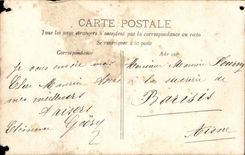 CARTE POSTALE
Tous les pays étrangers n'acceptent pas la correspondance au recto
Se renseigner à la poste
Correspondance
Adresse
Je vous envoie mon
Cher Maurice
mes meilleurs
Etienne
Monsieur Maurice
à la sucrerie de
Barisis
Aisne